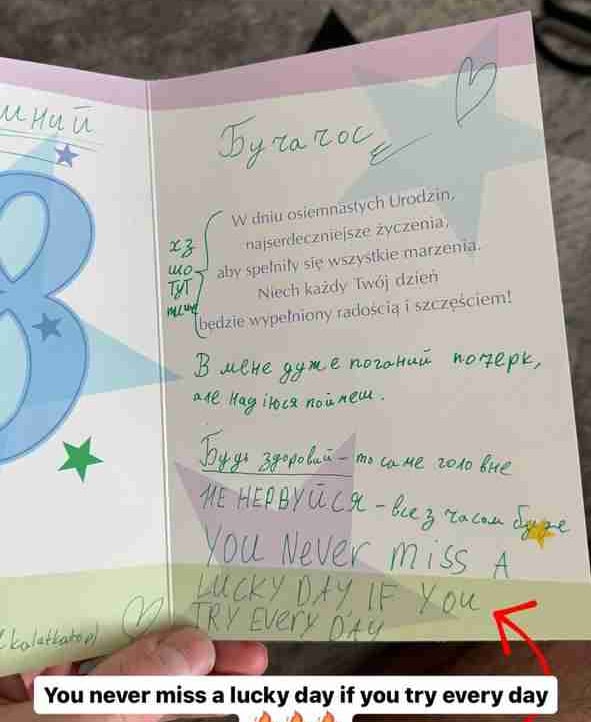 мний
Бучачос
W dniu osiemnastych Urodzin,
najserdeczniejsze życzenia,
aby spełniły się wszystkie marzenia.
Niech każdy Twój dzień
będzie wypełniony radością i szczęściem!
хз
шо
тут
В мене дуже поганий почерк,
але надіюся поймеш.
Будь здоровий – то саме головне
НЕ НЕРВУЙСЯ – все з часом буде
YOU NEVER MISS A
LUCKY DAY IF YOU
TRY EVERY DAY
You never miss a lucky day if you try every day